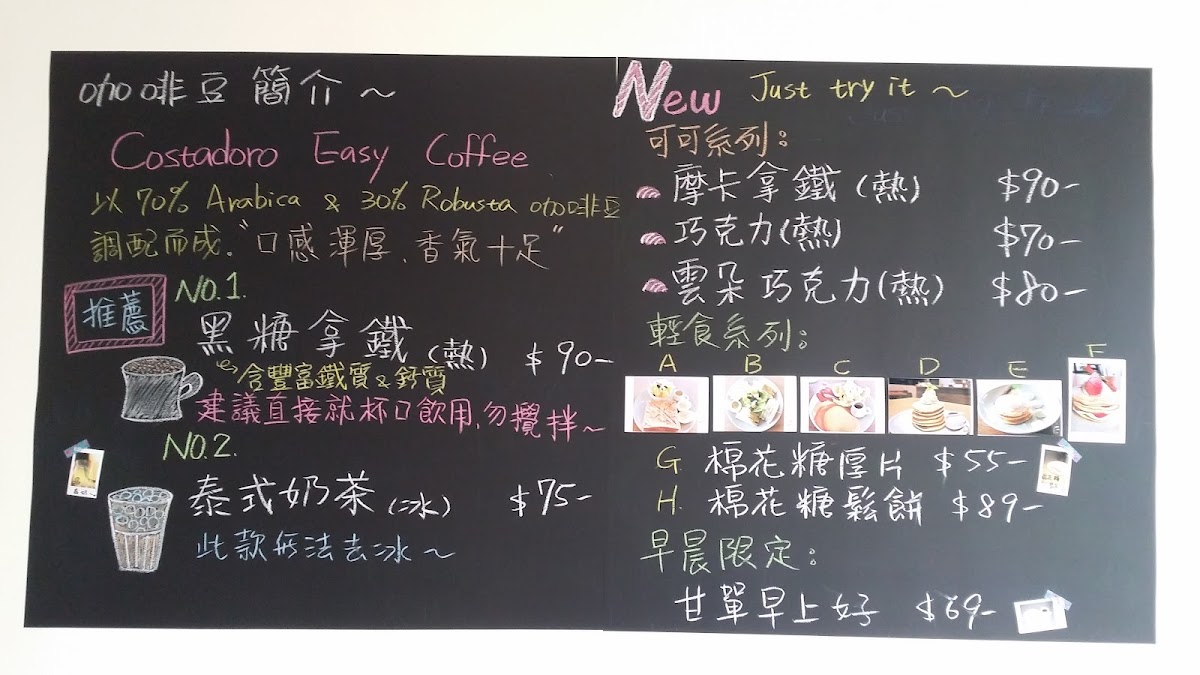 咖啡豆簡介～
Costadoro Easy Coffee
以70% Arabica & 30% Robusta 咖啡豆
調配而成."口感渾厚、香氣十足"
推薦
NO.1.
黑糖拿鐵(熱) $90-
含豐富鐵質&鈣質
建議直接就杯口飲用,勿攪拌~
NO.2.
泰式奶茶(冰) $75-
此款無法去冰～
New Just try it ~
可可系列:
摩卡拿鐵(熱) $90-
巧克力(熱) $70-
雲朵巧克力(熱) $80-
輕食系列:
A B C D E F
G 棉花糖厚片 $55-
H. 棉花糖鬆餅 $89-
早晨限定:
甘單早上好 $69-